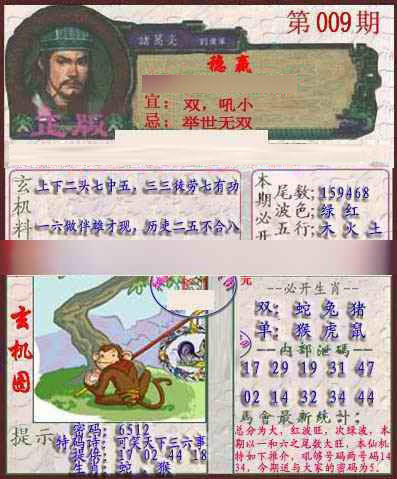 第009期
諸葛亮 劉伯溫
稳赢
宜：双，吼小
忌：举世无双
正版
玄机料
上下二头七中五，三三徒劳七有功
一六做伴雄才现，历史二五不合八
本期必开
尾数；159468
波色；绿 红
五行；木 火 土
玄机图
必开生肖
双：蛇 兔 猪
单：猴 虎 鼠
内部泄码
17 29 19 31 47
02 14 32 34 44
馬會最新統計：
总分为大，红波旺，次绿波，本
期以一和六之尾数大旺，本仙机
特如下推介，吼够号码两号码14
34，今期送与大家的密码为5．
提示
密码：6512
特码诗：可笑天下三六事
提供：17 02 44 18
生肖：蛇、猴